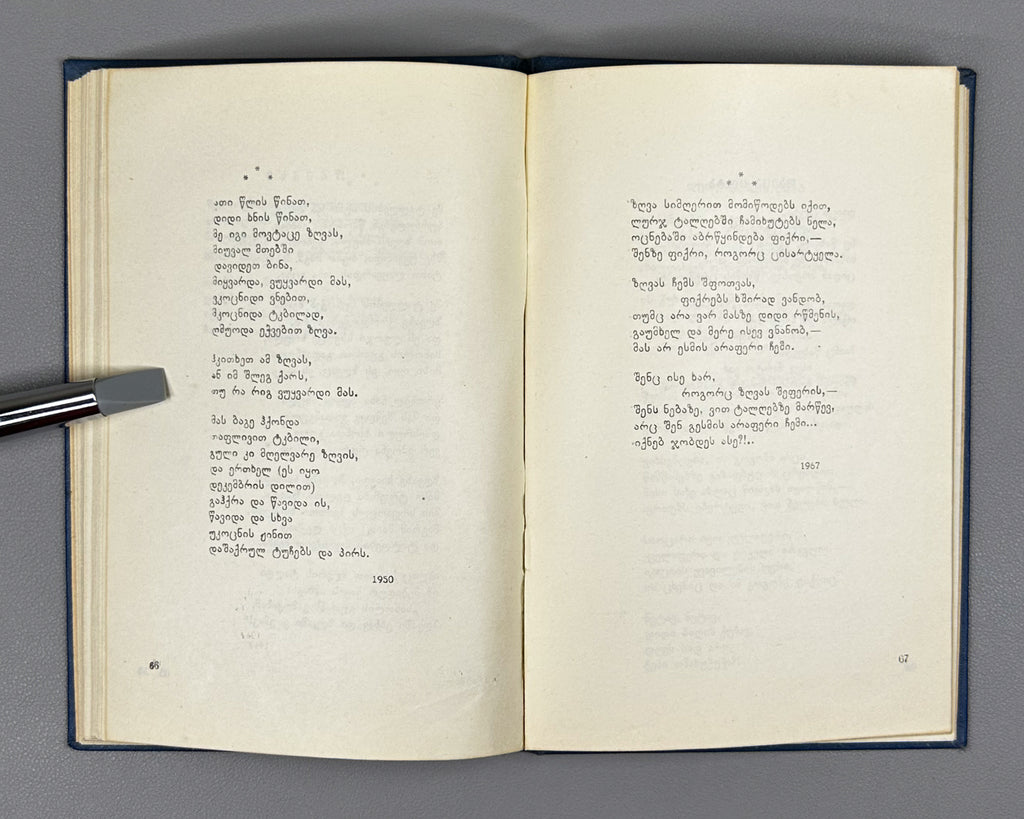 * * *
ათი წლის წინათ,
დიდი ხნის წინათ,
მე იგი მოვტაცე ზღვას,
მიუვალ მთებში
დავიდეთ ბინა,
მიყვარდა, ვუყვარდი მას,
ვკოცნიდი ვნებით,
მკოცნიდა ტკბილად,
ღმუოდა ეჭვებით ზღვა.
ჰკითხეთ ამ ზღვას,
ან იმ შლეგ ქარს,
თუ რა რიგ ვუყვარდი მას.
მას ბაგე ჰქონდა
თაფლივით ტკბილი,
გული კი მღელვარე ზღვის,
და ერთხელ (ეს იყო
დეკემბრის დილით)
გაჰქრა და წავიდა ის,
წავიდა და სხვა
უკოცნის ჟინით
დაშაქრულ ტუჩებს და პირს.
1950
66
* * *
ზღვა სიმღერით მომიწოდებს იქით,
ლურჯ ტალღებში ჩამიხუტებს ნელა,
ოცნებაში აბრწყინდება ფიქრი,—
შენზე ფიქრი, როგორც ცისარტყელა.
ზღვას ჩემს შფოთვას,
ფიქრებს ხშირად ვანდობ,
თუმც არა ვარ მასზე დიდი რწმენის,
გაუმხელ და მერე ისევ ვნანობ,—
მას არ ესმის არაფერი ჩემი.
შენც ისე ხარ,
როგორც ზღვას შეფერის,—
შენს ნებაზე, ვით ტალღებზე მარწევ,
არც შენ გესმის არაფერი ჩემი...
იქნებ ჯობდეს ასე?!..
1967
67